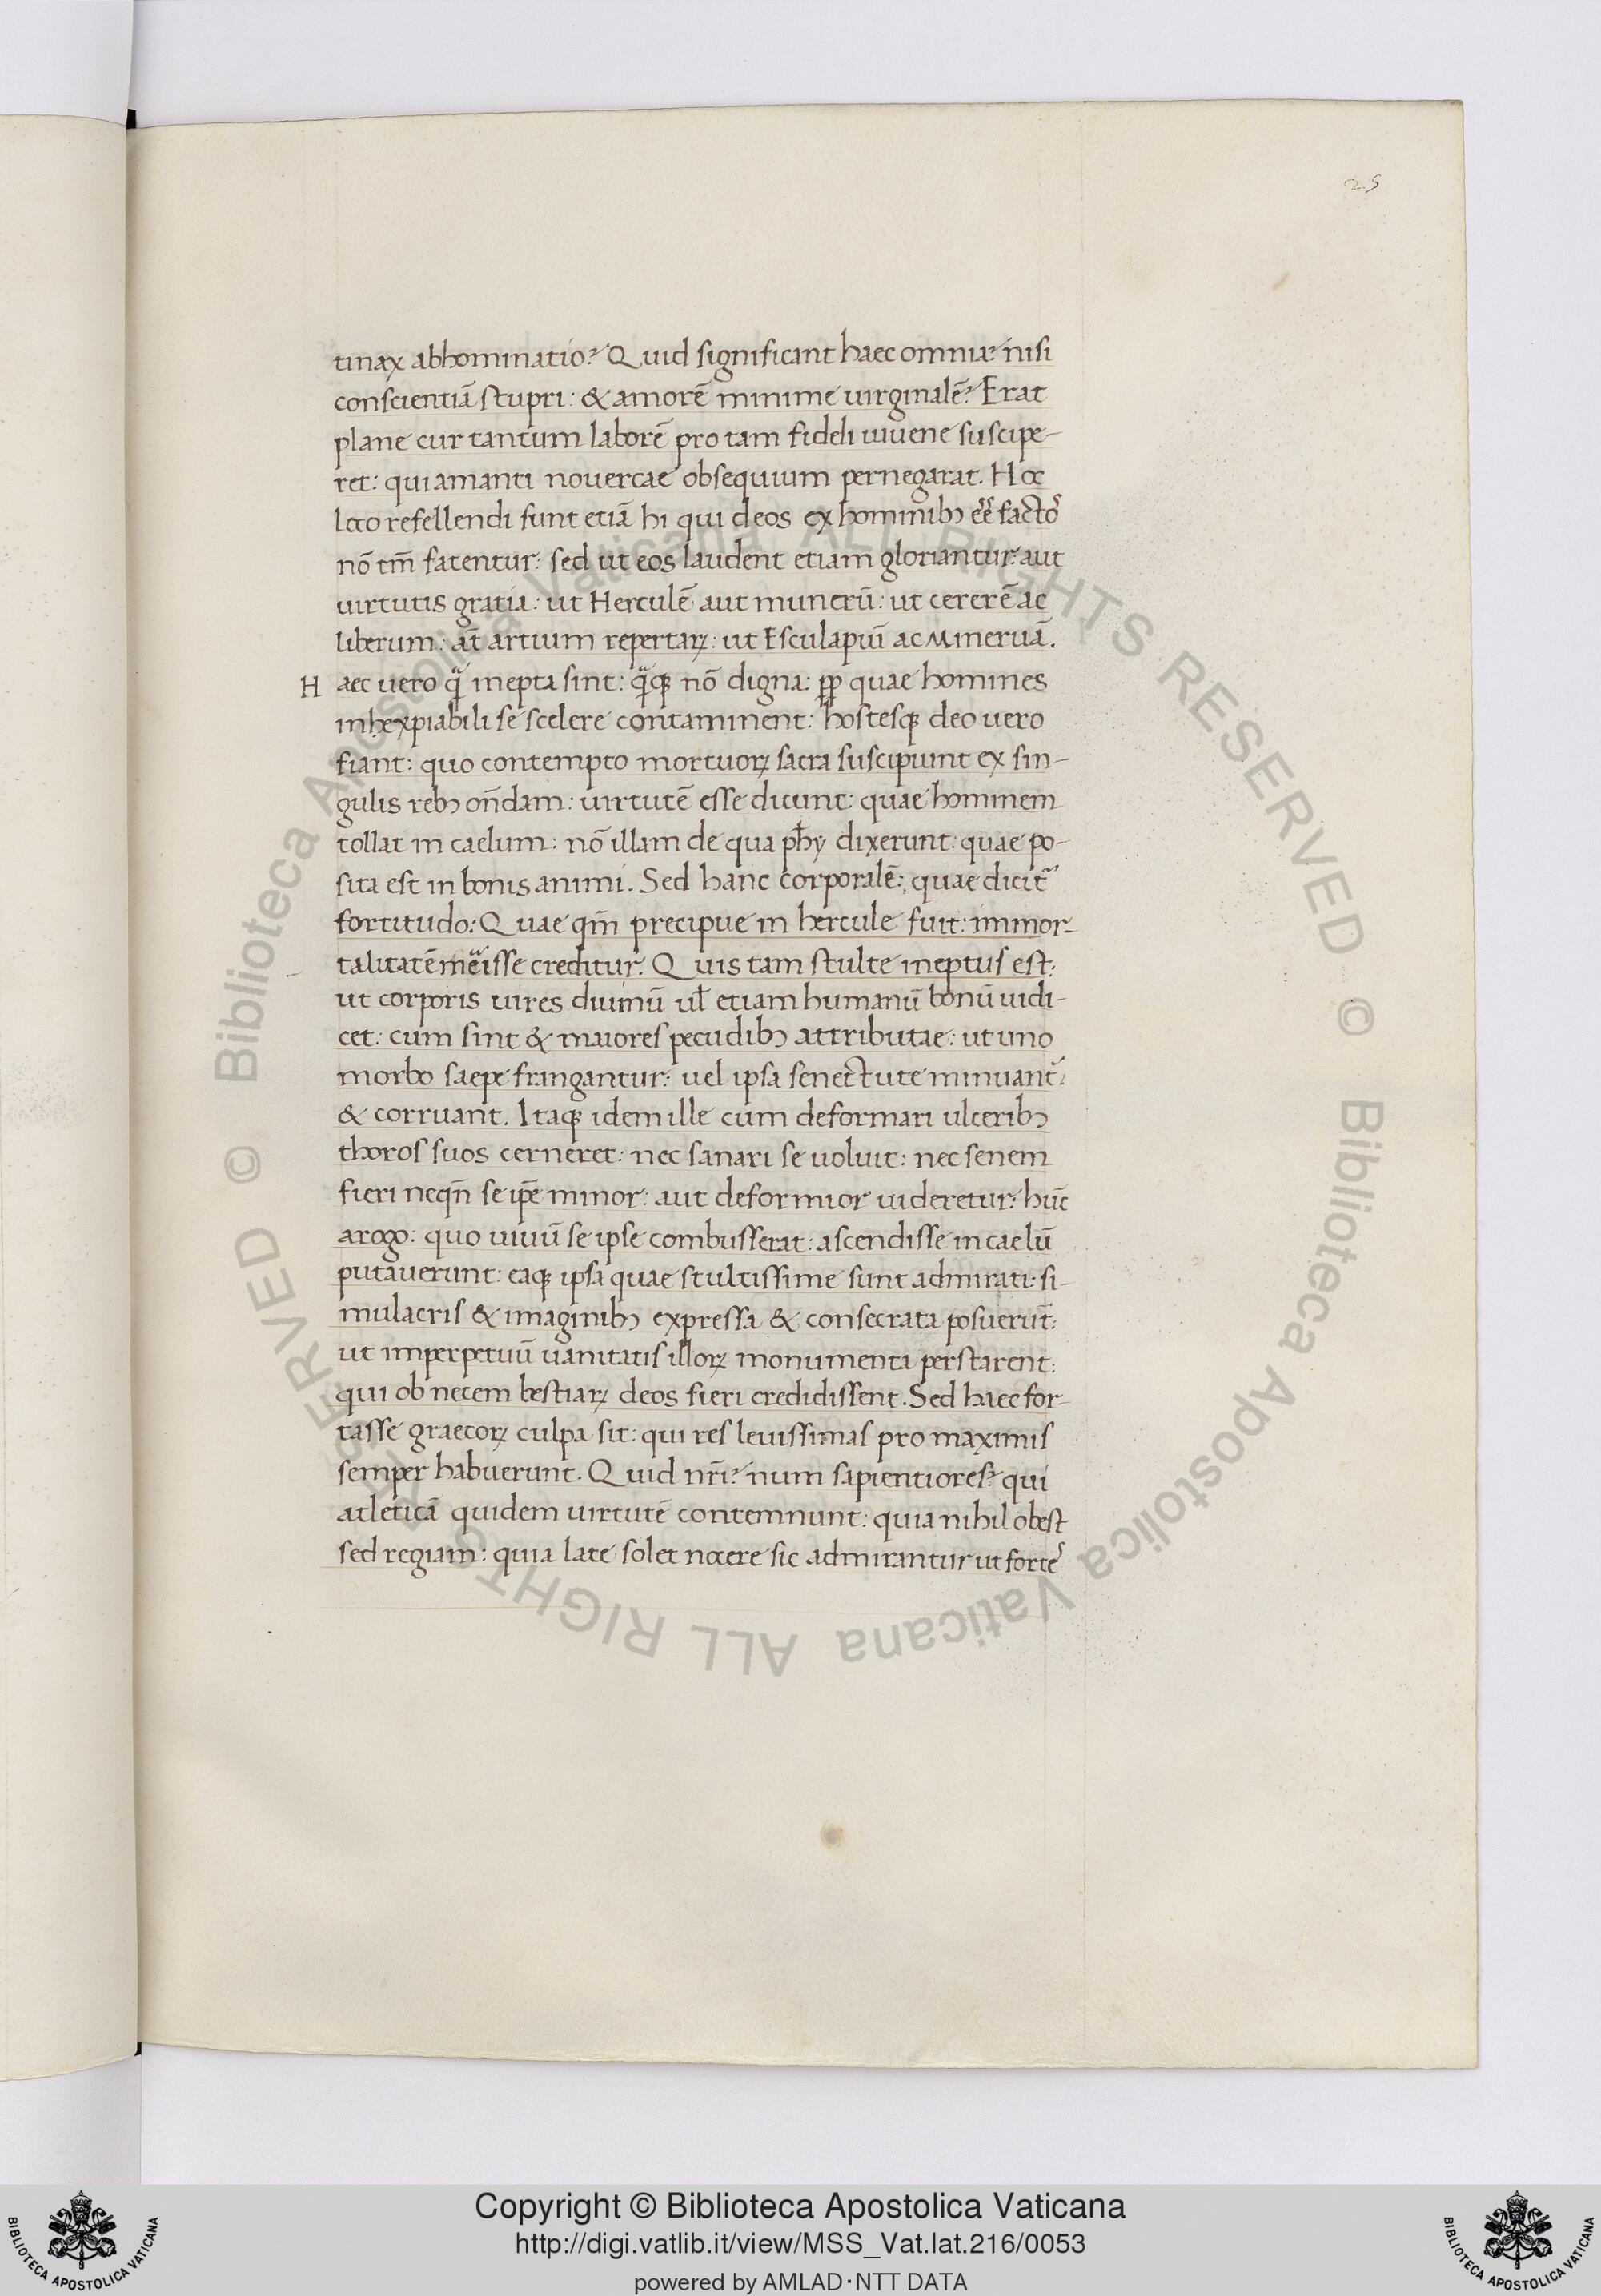 25
tinax abhominatio? Quid significant haec omnia? nisi
conscientiā stupri: & amorē minime virginalē? Erat
plane cur tantum laborē pro tam fideli iuvene suscipe-
ret: qui amanti novercae obsequium pernegarat. Hoc
loco refellendi sunt etiā hi qui deos ex hominibꝫ eē factoꝭ
nō tm̄ fatentur: sed ut eos laudent etiam gloriantur: aut
virtutis gratia: ut Herculē aut munerū: ut cererē ac
liberum: at̄ artium repertaꝝ: ut Esculapiū ac Minervā.
Haec vero qͣ inepta sint: qͣqꝫ nō digna: ꝓp̄ quae homines
inhexpiabili se scelere contaminent: hostesqꝫ deo vero
fiant: quo contempto mortuoꝝ sacra suscipiunt ex sin-
gulis rebꝫ on̄dam: virtutē esse dicunt: quae hominem
tollat in caelum: nō illam de qua ph̄y dixerunt: quae po-
sita est in bonis animi. Sed hanc corporalē: quae dicit᷑
fortitudo: Quae qm̄ precipue in hercule fuit: immor-
talitatē meͣisse creditur. Quis tam stulte ineptus est:
ut corporis vires divinū vl̄ etiam humanū bonū iudi-
cet: cum sint & maiores pecudibꝫ attributae: ut uno
morbo saepe frangantur: vel ipsa senectute minuant᷑:
& corruant. Itaqꝫ idem ille cum deformari ulceribꝫ
thoros suos cerneret: nec sanari se voluit: nec senem
fieri neqn̄ se ip̄e minor: aut deformior videretur: hūc
a rogo: quo vivū se ipse combusserat: ascendisse in caelū
putaverunt: eaqꝫ ipsa quae stultissime sunt admirati: si-
mulacris & imaginibꝫ expressa & consecrata posuerūt:
ut imperpetuū vanitatis illoꝝ monumenta perstarent:
qui ob necem bestiaꝝ deos fieri credidissent. Sed haec for-
tasse graecoꝝ culpa sit: qui res levissimas pro maximis
semper habuerunt. Quid nr̄i? num sapientiores? qui
atleticā quidem virtutē contemnunt: quia nihil obest
sed regiam: quia late solet nocere sic admirantur ut forteꝭ
Copyright © Biblioteca Apostolica Vaticana
http://digi.vatlib.it/view/MSS_Vat.lat.216/0053
powered by AMLAD·NTT DATA
BIBLIOTECA APOSTOLICA VATICANA
BIBLIOTECA APOSTOLICA VATICANA
© Biblioteca Apostolica Vaticana ALL RIGHTS RESERVED
© Biblioteca Apostolica Vaticana ALL RIGHTS RESERVED